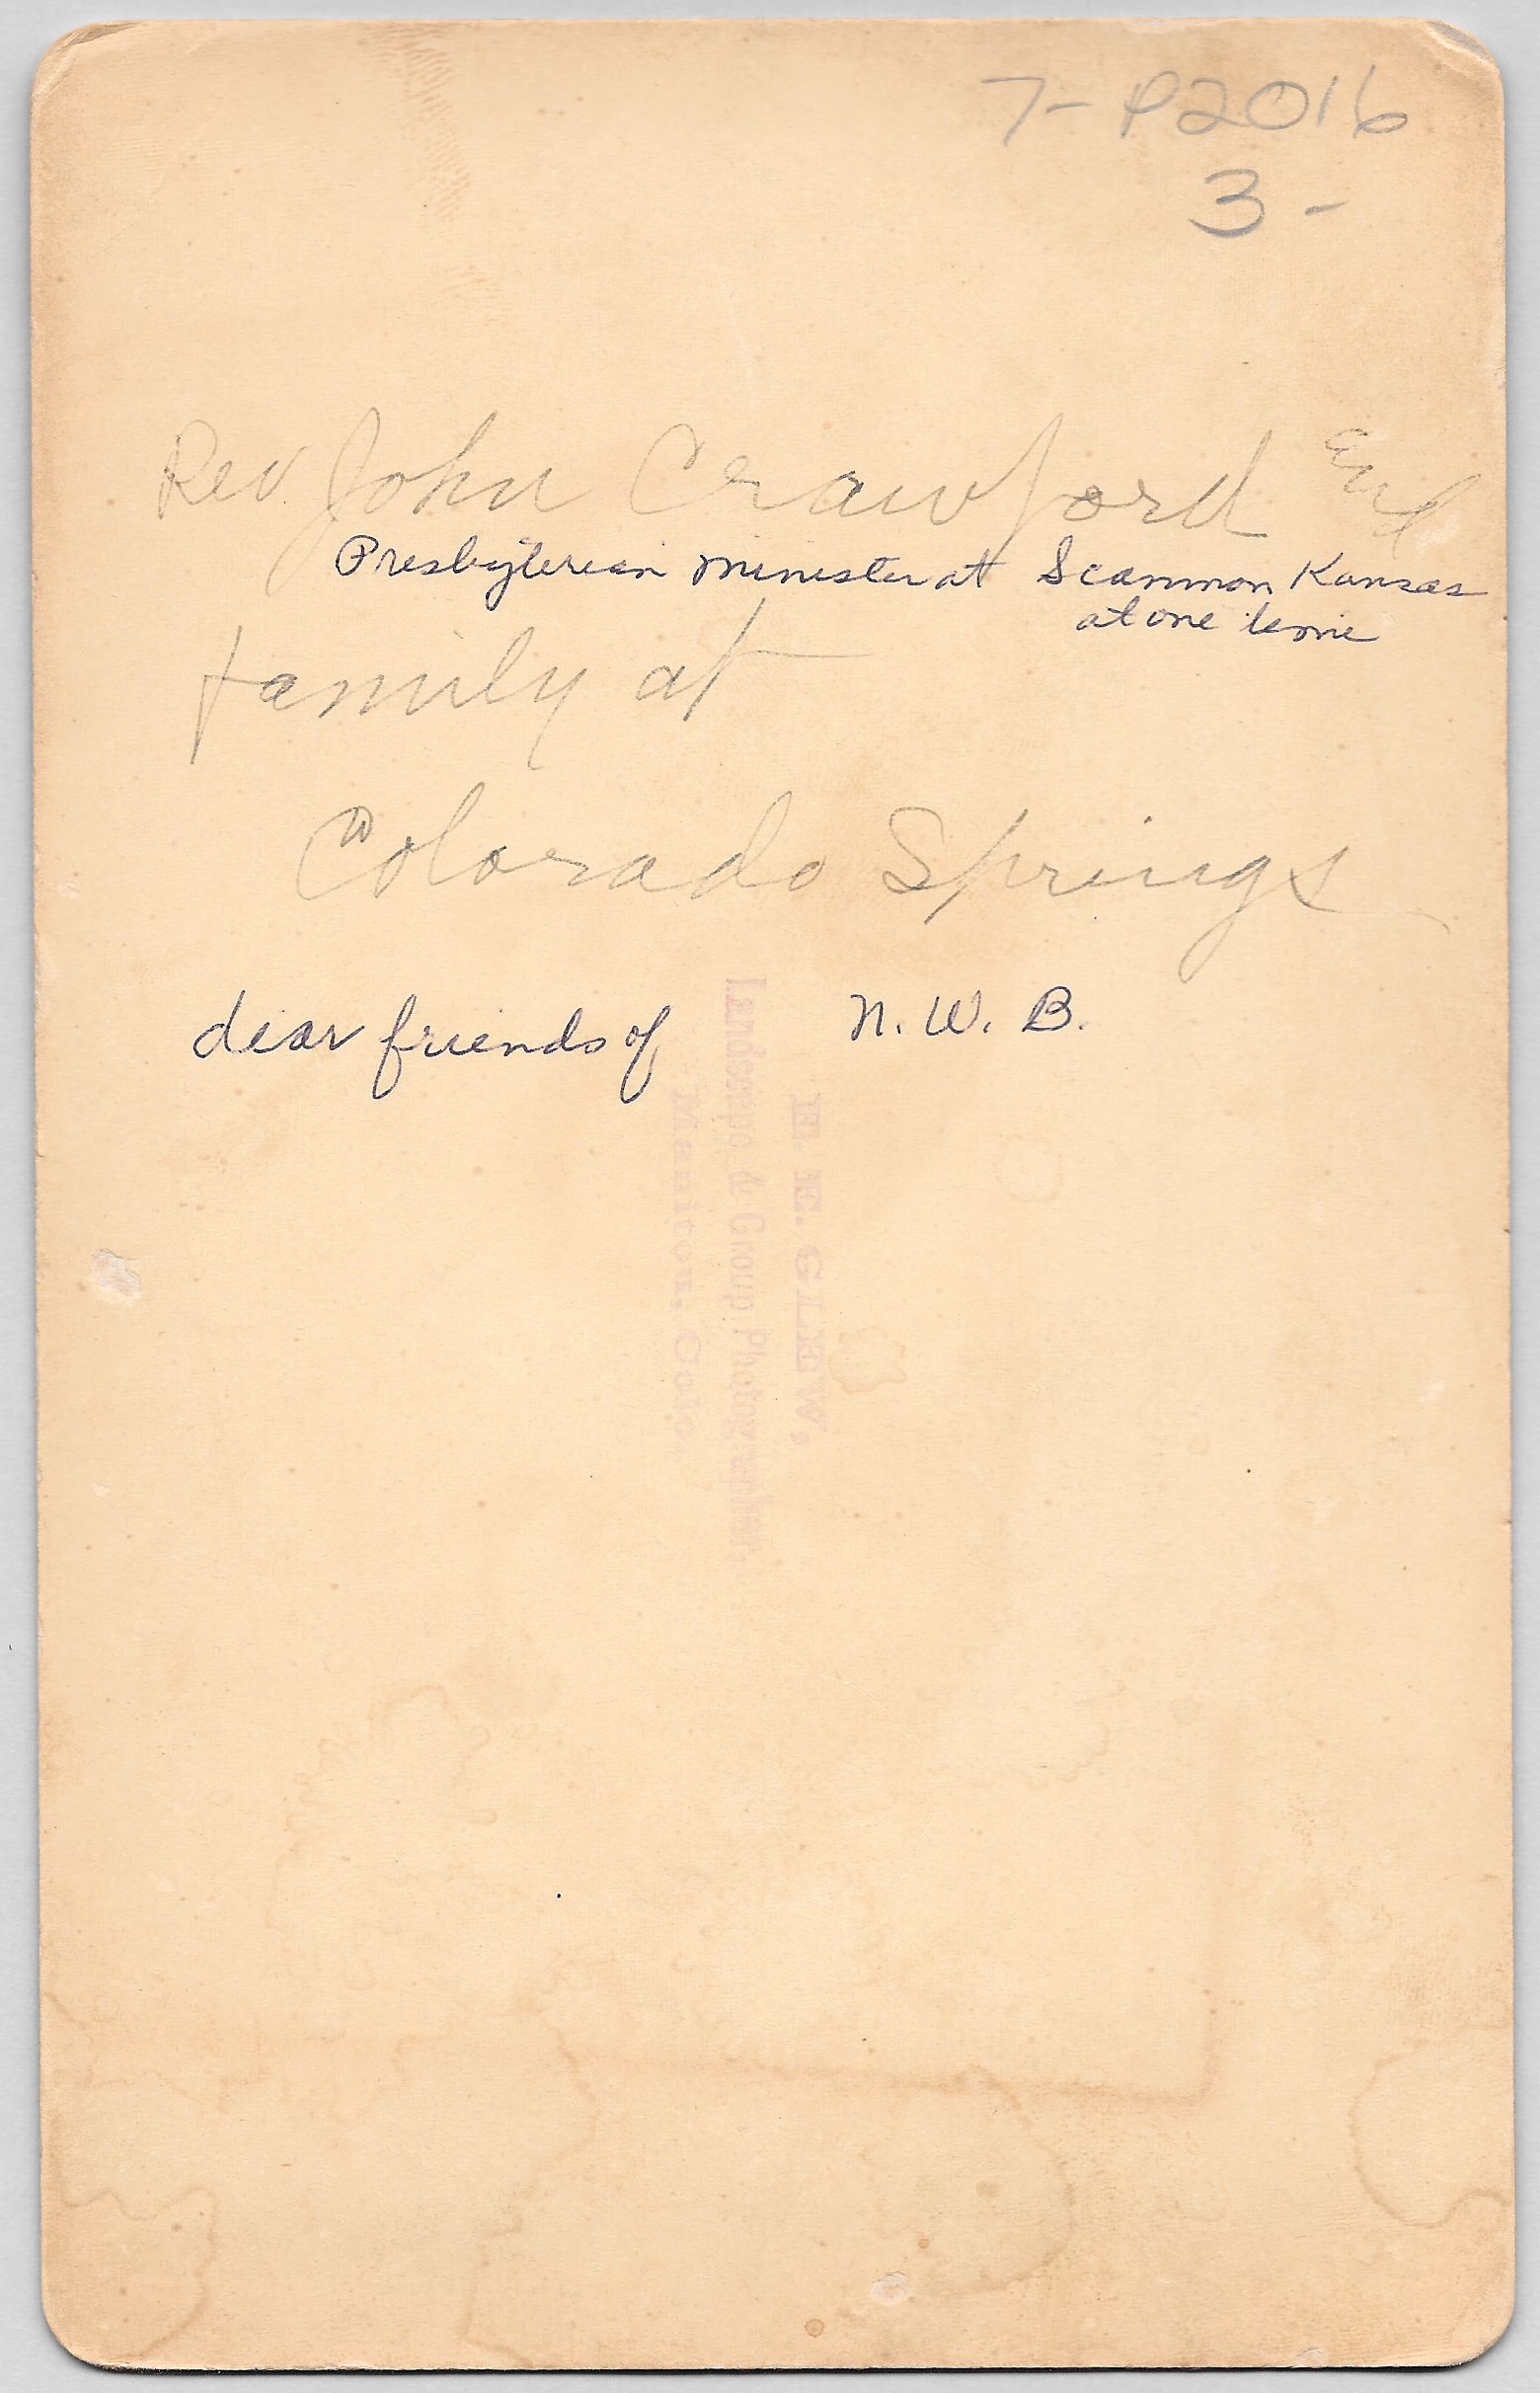 7- P2016
3-
Rev. John Crawford and
Presbyterian minister at Scammon Kansas
at one time
family at
Colorado Springs
dear friends of N. W. B.
E. E. GLEW,
Landscape & Group Photographer,
Manitou, Colo.